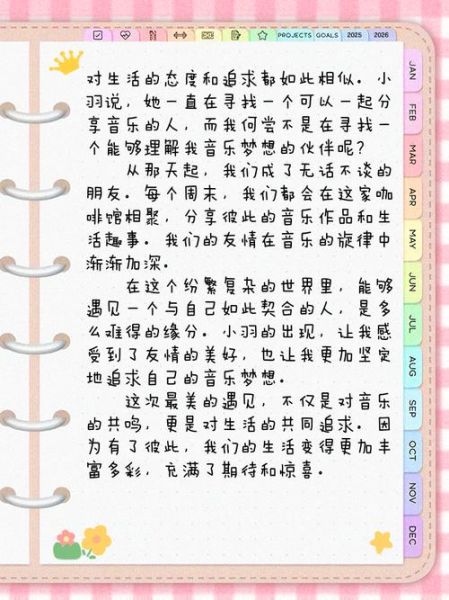 PROJECTS GOALS 2025 2026
对生活的态度和追求都如此相似。小
羽说，她一直在寻找一个可以一起分
享音乐的人，而我何尝不是在寻找一
个能够理解我音乐梦想的伙伴呢？
从那天起，我们成了无话不谈的
朋友。每个周末，我们都会在这家咖
啡馆相聚，分享彼此的音乐作品和生
活趣事。我们的友情在音乐的旋律中
渐渐加深。
在这个纷繁复杂的世界里，能够
遇见一个与自己如此契合的人，是多
么难得的缘分。小羽的出现，让我感
受到了友情的美好，也让我更加坚定
地追求自己的音乐梦想。
这次最美的遇见，不仅是对音乐
的共鸣，更是对生活的共同追求。因
为有了彼此，我们的生活变得更加丰
富多彩，充满了期待和惊喜。
JAN
FEB
MAR
APR
MAY
JUN
JUL
AUG
SEP
OCT
NOV
DEC